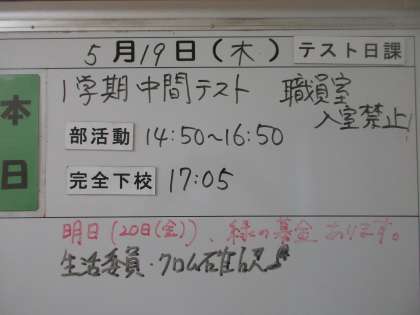 本日
5月19日(木) テスト日課
1学期中間テスト 職員室
入室禁止!
部活動 14:50~16:50
完全下校 17:05
明日(20日(金))、緑の募金あります。
生活委員・クロム確認